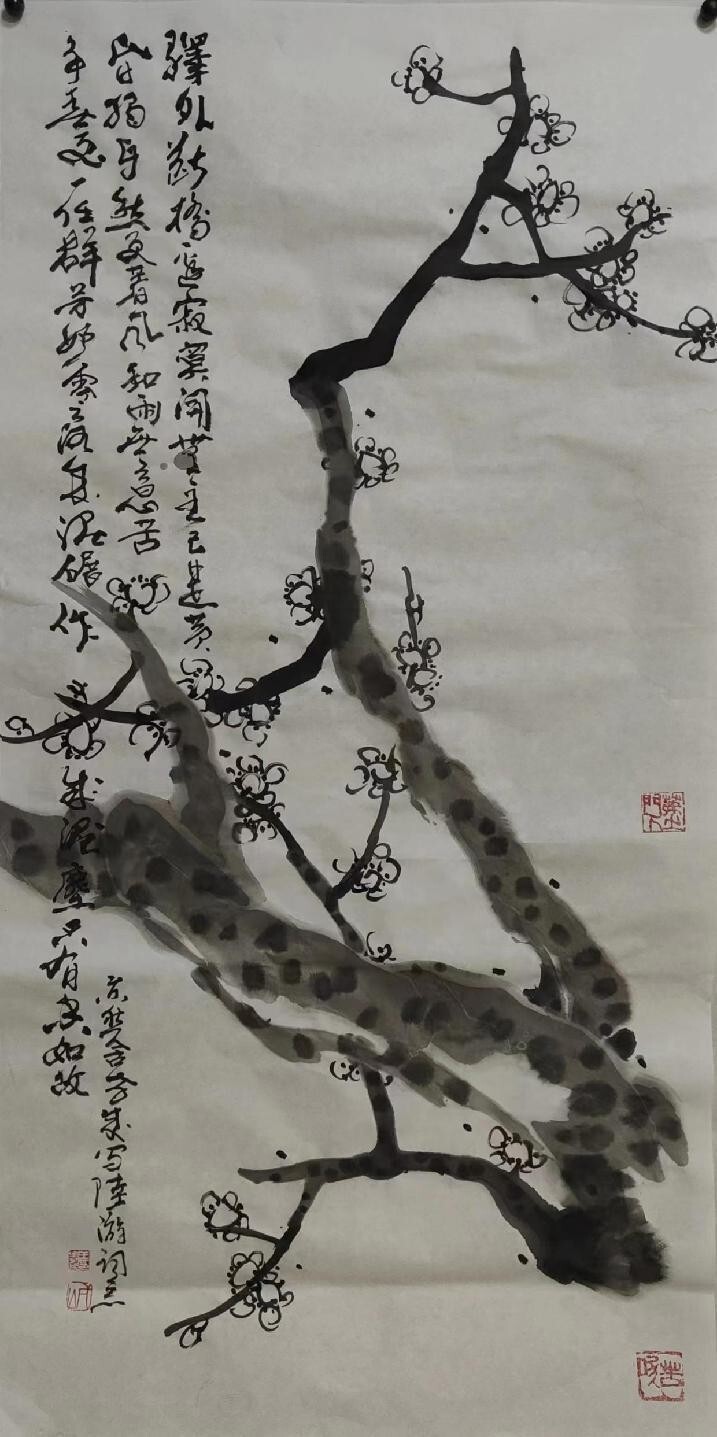 驛外斷橋邊寂寞開無主已是黄
昏獨自愁更著風和雨無意苦
争春一任群芳妒零落成泥碾作
成泥塵只有香如故
舍方成写陸游詞意